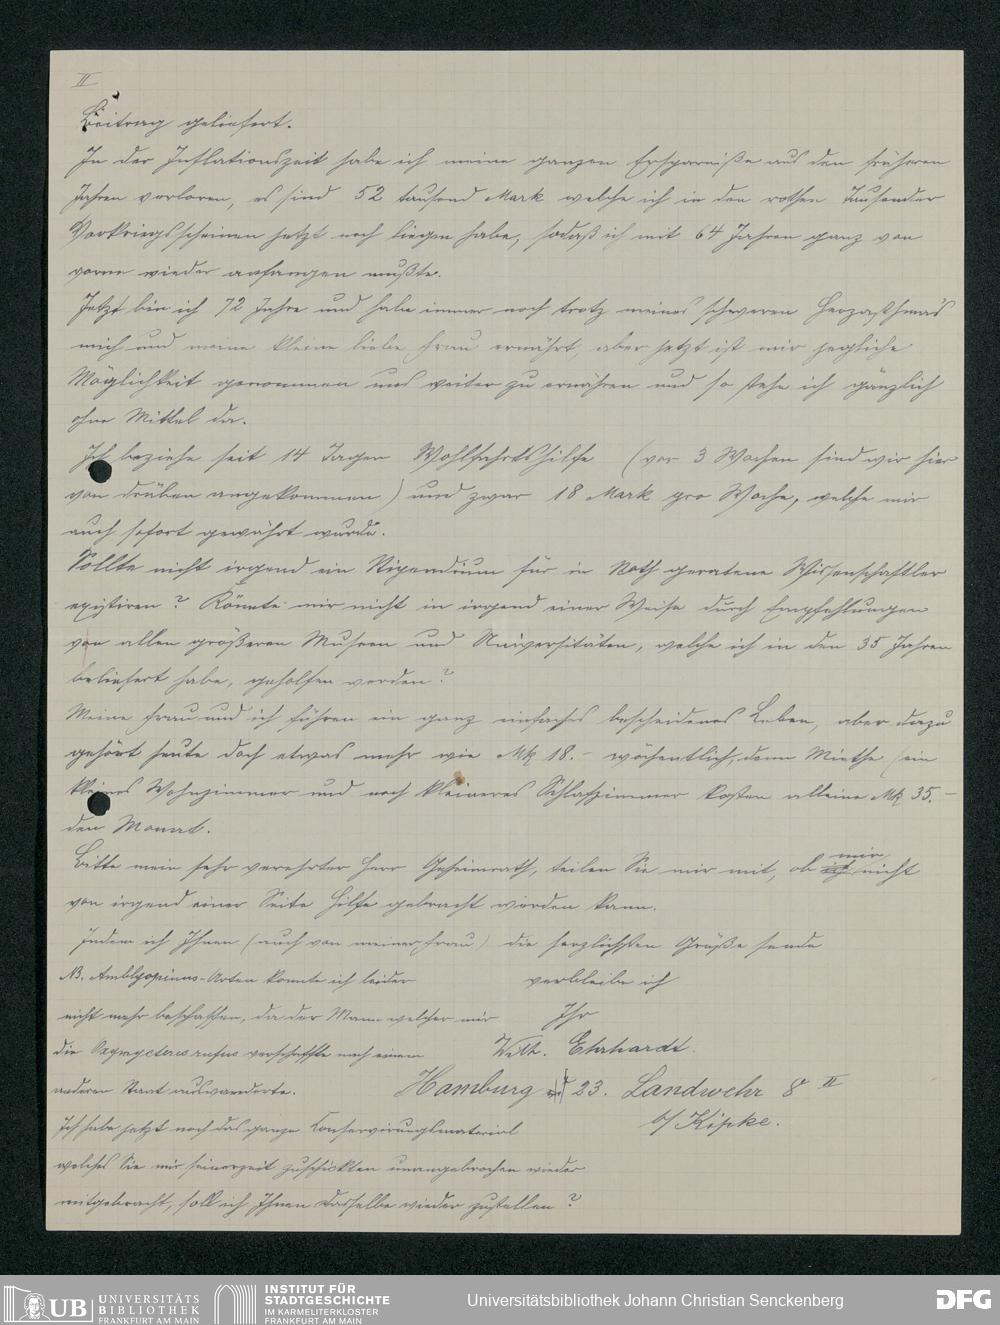 II
Beitrag geliefert.
In der Inflationszeit habe ich meine ganzen Ersparniße aus den früheren
Jahren verloren, es sind 52 tausend Mark welche ich in den rothen Tausender
Vorkriegsscheinen jetzt noch liegen habe, sodaß ich mit 64 Jahren ganz von
vorne wieder anfangen mußte.
Jetzt bin ich 72 Jahre und habe immer noch trotz meines schweren Herzasthmas
mich und meine kleine liebe Frau ernährt, aber jetzt ist mir jegliche
Möglichkeit genommen uns weiter zu ernähren und so stehe ich gänzlich
ohne Mittel da.
Ich beziehe seit 14 Tagen Wohlfahrtshilfe (vor 3 Wochen sind wir hier
von drüben angekommen) und zwar 18 Mark pro Woche, welche mir
auch sofort gewährt wurde.
Sollte nicht irgend ein Stipendium für in Noth geratene Wissenschaftler
existiren? Könnte mir nicht in irgend einer Weise durch Empfehlungen
von allen größeren Museen und Universitäten, welche ich in den 35 Jahren
beliefert habe, geholfen werden?
Meine Frau und ich führen ein ganz einfaches bescheidenes Leben, aber dazu
gehört heute doch etwas mehr wie Mk 18.- wöchentlich, denn Miethe (ein
kleines Wohnzimmer und noch kleineres Schlafzimmer kosten alleine Mk 35.-
den Monat.
Bitte mein sehr verehrter Herr Geheimrath, teilen Sie mir mit, ob ich mir nicht
von irgend einer Seite Hilfe gebracht werden kann.
Indem ich Ihnen (auch von meiner Frau) die herzlichsten Grüße sende
verbleibe ich
Ihr
Wilh. Ehrhardt.
Hamburg 23. Landwehr 8 II
b/ Kipke.
NB. Amblyopinus-Arten konnte ich leider
nicht mehr beschaffen, da der Mann welcher mir
die Oxymycterus rufus verschaffte nach einem
anderen Staat auswanderte.
Ich habe jetzt noch das ganze Conservirungsmaterial
welches Sie mir seinerzeit zuschickten unangebrochen wieder
mitgebracht, soll ich Ihnen dasselbe wieder zustellen?
UB UNIVERSITÄTS
BIBLIOTHEK
FRANKFURT AM MAIN
INSTITUT FÜR
STADTGESCHICHTE
IM KARMELITERKLOSTER
FRANKFURT AM MAIN
Universitätsbibliothek Johann Christian Senckenberg
DFG